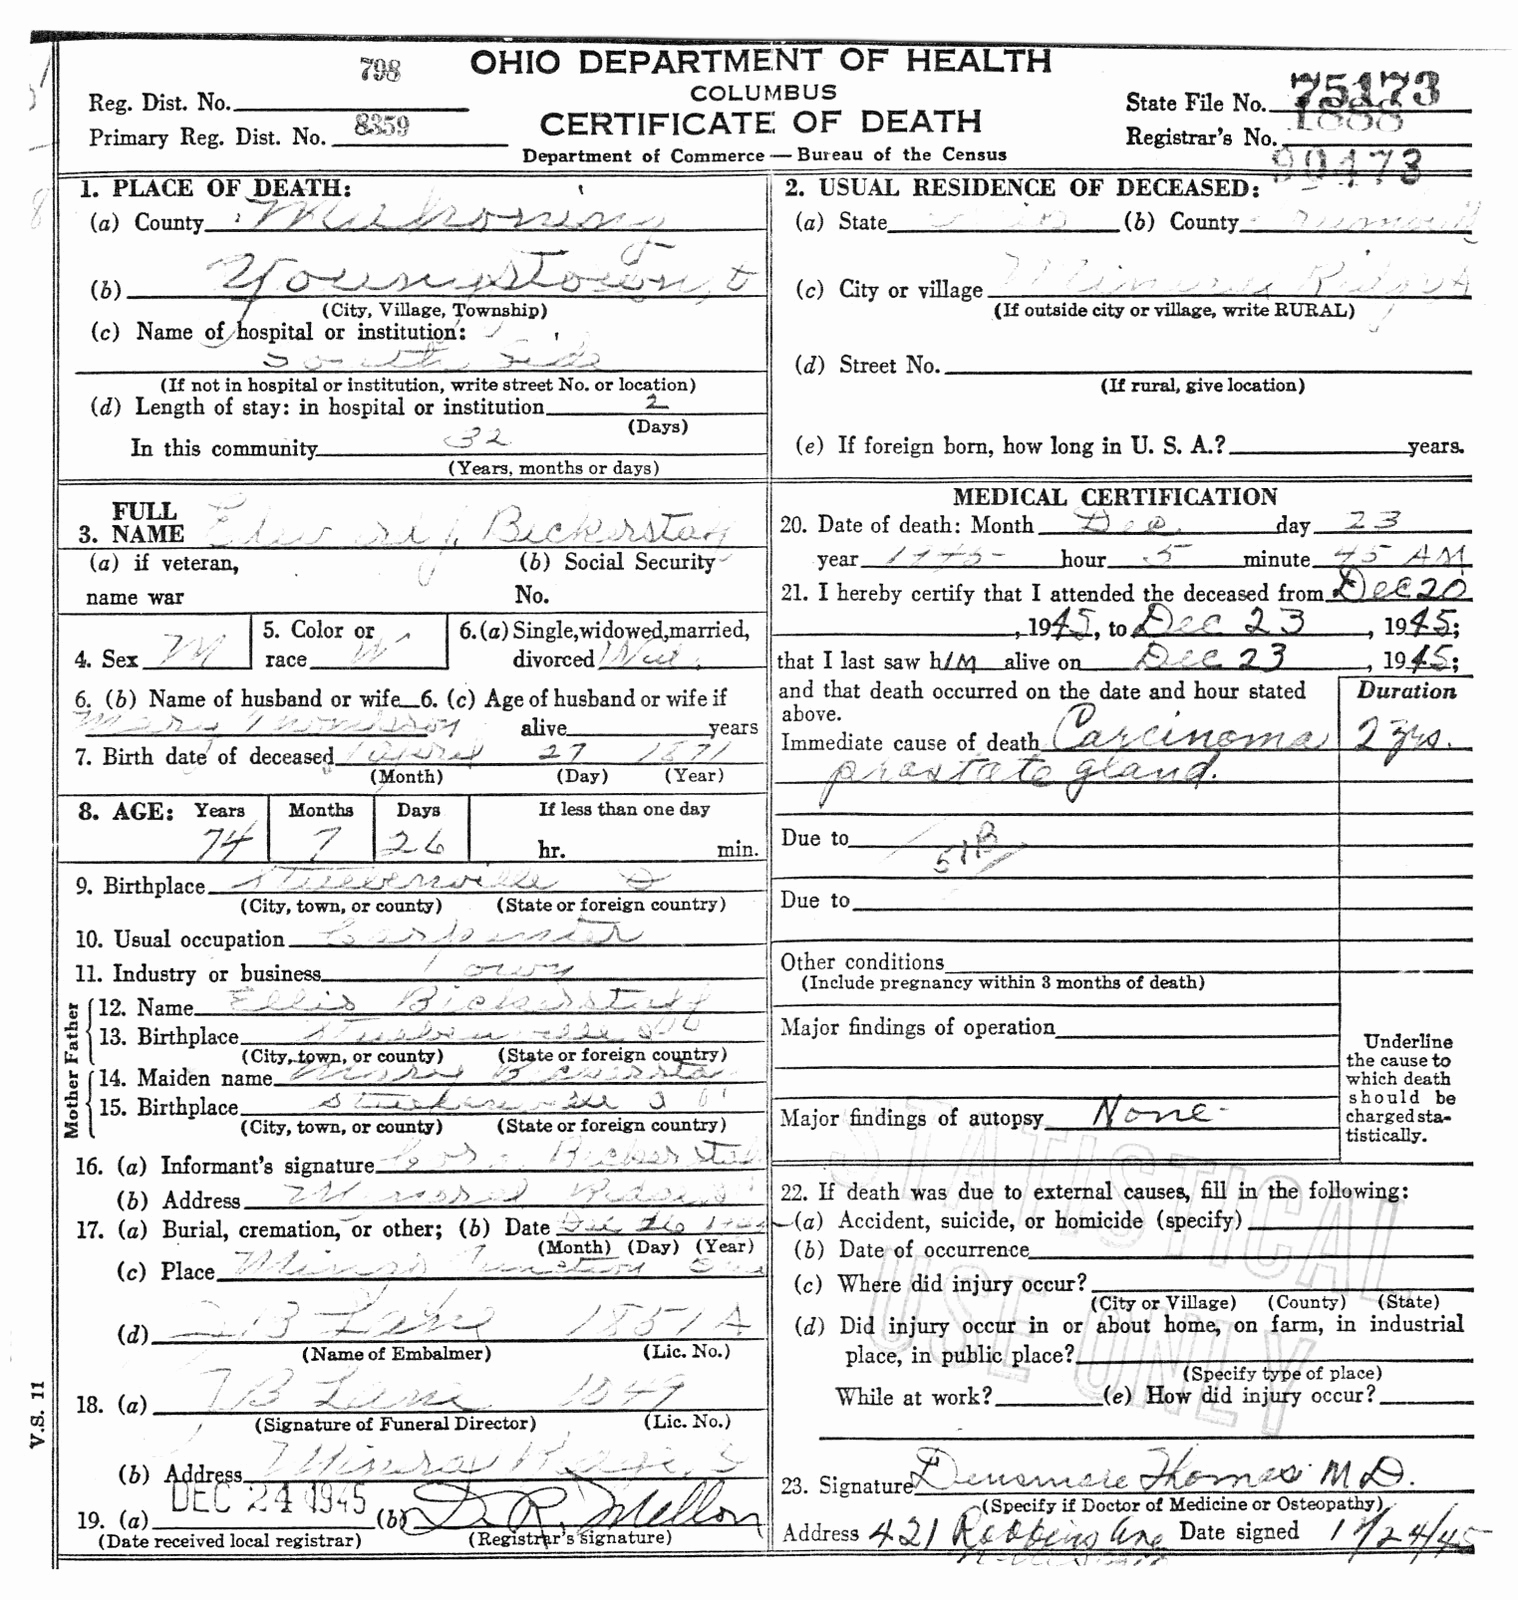 OHIO DEPARTMENT OF HEALTH
COLUMBUS
CERTIFICATE OF DEATH
Department of Commerce — Bureau of the Census
Reg. Dist. No. 798
Primary Reg. Dist. No. 8359
State File No. 75173
Registrar's No. 1888
90473
1. PLACE OF DEATH:
(a) County Mahoning
(b) Youngstown, O
(City, Village, Township)
(c) Name of hospital or institution:
South Side
(If not in hospital or institution, write street No. or location)
(d) Length of stay: in hospital or institution 2
(Days)
In this community 32
(Years, months or days)
2. USUAL RESIDENCE OF DECEASED:
(a) State Ohio (b) County Trumbull
(c) City or village Mineral Ridge
(If outside city or village, write RURAL)
(d) Street No.
(If rural, give location)
(e) If foreign born, how long in U. S. A.? years.
3. FULL NAME Edward J. Bickerstaff
(a) if veteran, name war
(b) Social Security No.
4. Sex M
5. Color or race W
6. (a) Single, widowed, married, divorced Wid.
6. (b) Name of husband or wife Mary Thompson
6. (c) Age of husband or wife if alive years
7. Birth date of deceased April 27 1871
(Month) (Day) (Year)
8. AGE: Years Months Days If less than one day
74 7 26 hr. min.
9. Birthplace Steubenville O
(City, town, or county) (State or foreign country)
10. Usual occupation Carpenter
11. Industry or business
Father
12. Name Ellis Bickerstaff
13. Birthplace Steubenville O
(City, town, or county) (State or foreign country)
Mother
14. Maiden name
15. Birthplace Steubenville O
(City, town, or county) (State or foreign country)
16. (a) Informant's signature Bickerstaff
(b) Address Mineral Ridge, O
17. (a) Burial, cremation, or other; (b) Date Dec 26
(Month) (Day) (Year)
(c) Place Mingo Junction
(d) Lane 1851A
(Name of Embalmer) (Lic. No.)
18. (a) Lane 1849
(Signature of Funeral Director) (Lic. No.)
(b) Address Mineral Ridge, O
19. (a) DEC 24 1945 (b) D. R. Mellon
(Date received local registrar) (Registrar's signature)
V.S. 11
MEDICAL CERTIFICATION
20. Date of death: Month Dec. day 23
year 1945 hour 5 minute 45 AM
21. I hereby certify that I attended the deceased from Dec 20
, 1945, to Dec 23, 1945;
that I last saw him alive on Dec 23, 1945;
and that death occurred on the date and hour stated above.
Duration
Immediate cause of death Carcinoma 2 yrs.
prostate gland.
Due to
51B
Due to
Other conditions
(Include pregnancy within 3 months of death)
Major findings of operation
Major findings of autopsy None
Underline the cause to which death should be charged statistically.
STATISTICAL USE ONLY
22. If death was due to external causes, fill in the following:
(a) Accident, suicide, or homicide (specify)
(b) Date of occurrence
(c) Where did injury occur?
(City or Village) (County) (State)
(d) Did injury occur in or about home, on farm, in industrial
place, in public place?
(Specify type of place)
While at work? (e) How did injury occur?
23. Signature Densmore Thomas M D.
(Specify if Doctor of Medicine or Osteopathy)
Address 421 Robbins Ave Date signed 12/24/45